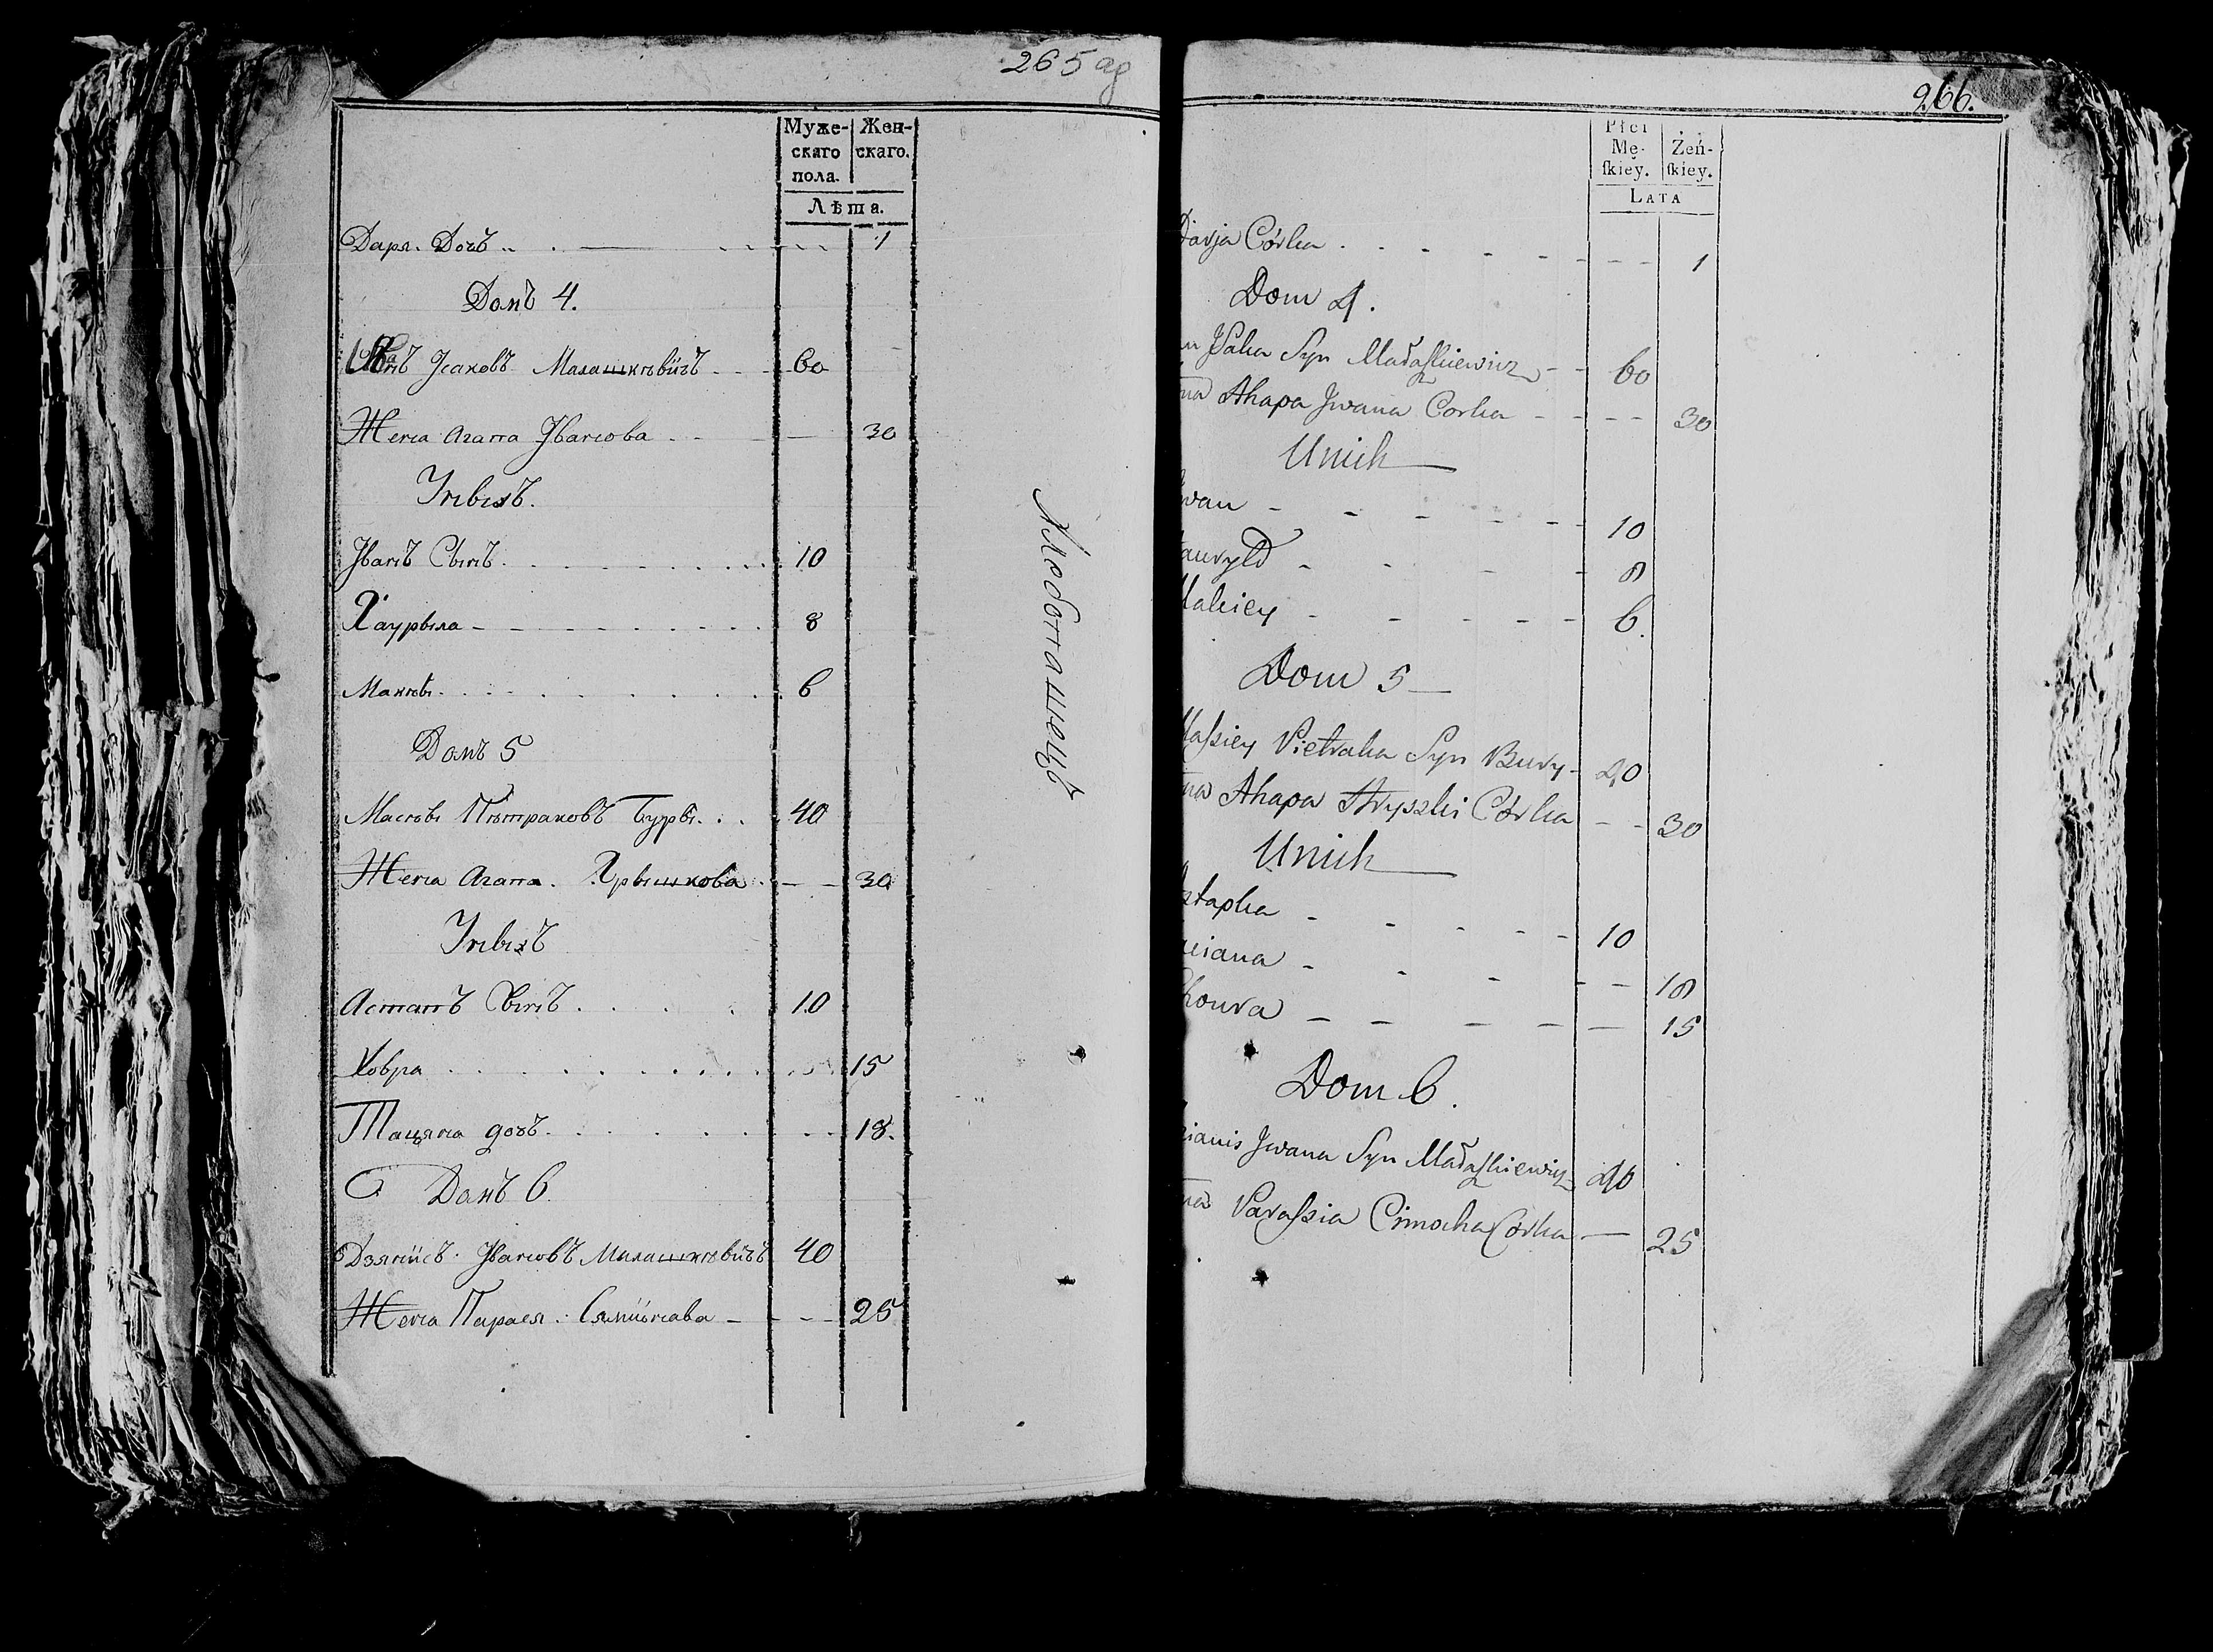 265 ад
Муже- Жен-
скаго скаго.
пола.
Лѣта.
Даря. Дочъ 1
Домъ 4.
Iсаковъ Малашкѣвïчъ 60
Жена Агапа Jванова 30
Унвихъ.
Jванъ Сынъ 10
Хаурыла 8
Макѣы 6
Домъ 5
Масѣы Пѣтраковъ Буры 40
Жена Агапа. Хрышкова 30
Унвихъ
Астапъ Сынъ 10
Ховра 15
Тацяна дочъ 18.
Домъ 6
Дзянïсъ Jвановъ Малашкѣвïчъ 40
Жена Парася 25
266.
Płci
Mę- Żeń-
ſkiey. ſkiey.
LATA
Darja Córka 1
Dom 4.
Jsaka Syn Małaszkiewicz 60
Ahapa Jwana Corka 30
Unich
wan 10
auryło 8
Makiey 6.
Dom 5
Massiey Pietraka Syn Bury 40
na Ahapa Hryszki Córka 30
Unich
stapka 10
ciana 18
houra 15
Dom 6.
zianis Jwana Syn Małaszkiewicz 40
na Parassia Cimocha Córka 25